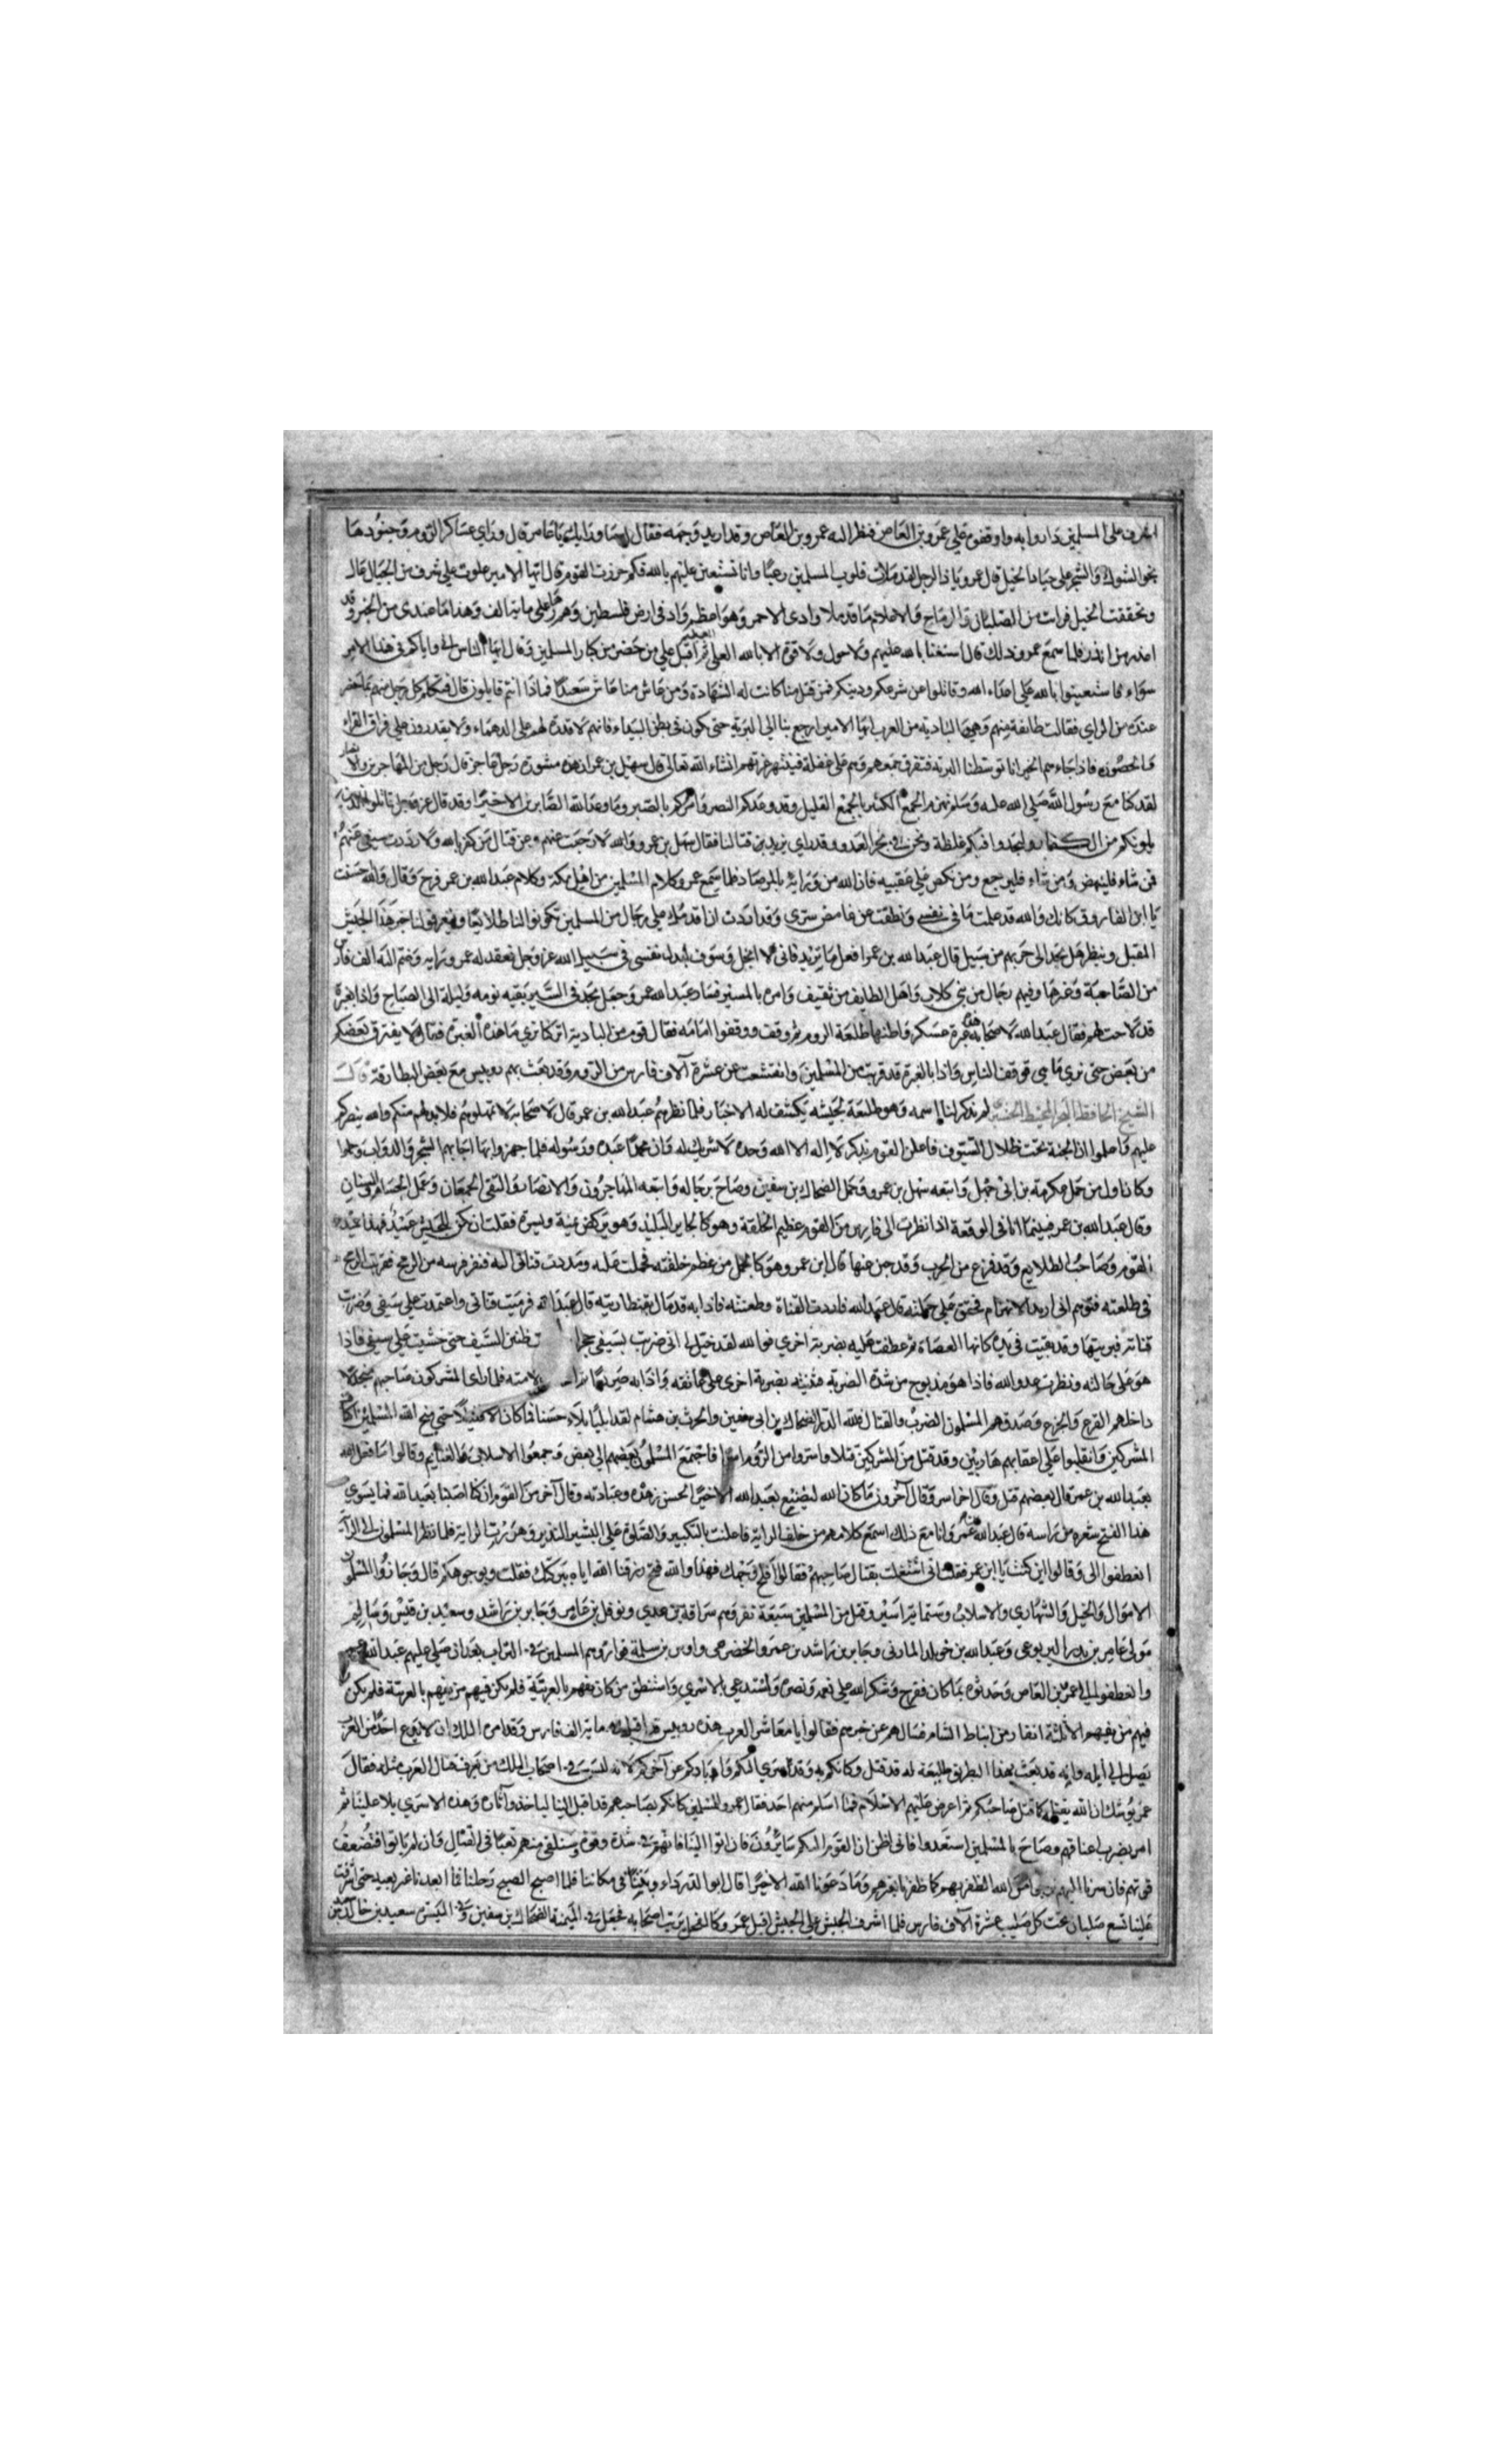 اشرف على المسلمين داروا به واوقفوه على عمرو بن العاص فنظر اليه عمرو بن العاص وقد اربد وجهه فقال له ما وراءك يا عامر قال وراي عساكر الروم وجنودها
نحو الشوك والشجر على جياد الخيل قال عمرو يا ذا الرجل لقد ملات قلوب المسلمين رعبا وانا نستعين عليهم بالله فكم حرزت القوم قال ايها الامير علوت على شرف من الجبال عال
وتحققت الخيل فرات من الصلبان والرماح والاعلام ما قد ملا وادى الاحمر وهو اعظم واد فى ارض فلسطين وهم زها على مايتا الف وهذا ما عندى من الخبر وقد
اعذر من انذر فلما سمع عمرو ذلك قال استغنا بالله عليهم ولا حول ولا قوة الا بالله العلى العظيم ثم اقبل على من حضر من كبار المسلمين وقال ايها الناس انى واياكم فى هذا الامر
سواء فاستعينوا بالله على اعداء الله وقاتلوا عن شرعكم ودينكم فمن قتل منا كانت له الشهادة ومن عاش منا عاش سعيدا فماذا انتم قايلون قال فتكلم كل رجل منهم بما حضر
عنده من الراي فقالت طائفة منهم وهى البادية من العرب ايها الامير ارجع بنا الى البرية حتى نكون فى بطن البيداء فانهم لا قدرة لهم على الدهماء ولا يقدرون على فراق القراء
والحصون فاذا جاءهم الخبر انا توسطنا البرية فتفرق جمعهم وهم على غفلة فينتهز غرتهم انشاء الله تعالى قال سهيل بن عمرو ان هذه مشورة رجل عاجز قال رجل من المهاجرين والانصار
لقد كنا مع رسول الله صلى الله عليه وسلم نهزم الجمع الكثير بالجمع القليل وقد وعدكم النصر وامركم بالصبر وما وعد الله الصابرين الا خيرا وقد قال عز وجل قاتلوا الذين
يلونكم من الكفار وليجدوا فيكم غلظة ونحن فى نحر العدو وقد راي يزيد بن قتالنا فقال سهل بن عمرو والله لا رجعت عنهم وعن قتال من كفر بالله ولا رددت سيفى عنهم
فمن شاء فلينهض ومن شاء فليرجع ومن نكص على عقبيه فان الله من وراية بالمرصاد فلما سمع عمرو كلام المسلمين من اهل مكة وكلام عبد الله بن عمر فرح وقال والله احسنت
يا ابن الفاروق كانك والله قد علمت ما فى نفسى ونطقت عن غامض سرى وقد اردت ان اقدمك على رجال من المسلمين تكونوا لنا طلائعا وتعرفوا لنا خبر هذا الجيش
المقبل وننظر هل نجد الى حربهم من سبيل قال عبد الله بن عمر افعل ما تريد فانى لا ابخل وسوف ابدل نفسى فى سبيل الله عز وجل فعقد له عمرو راية وضم اليه الف فارس
من الصاحبة وغرها وفيهم رجال من بنى كلاب واهل الطايف من ثقيف وامره بالمسير فسار عبد الله عمر وجعل يجد فى السير بقيه يومه وليلة الى الصباح واذا بغبرة
قد لاحت لهم فقال عبد الله لاصحابه هذه غبرة عسكر واظنها طلعة الروم ثم وقف ووقفوا امامه فقال قوم من البادية اتركنا نرى ما هذه الغبرة فقال لا يفترق بعضكم
من بعض حتى نرى ما هى فوقف الناس واذا بالغبرة قد قربت من المسلمين وانقشعت عن عشرة آلاف فارس من الروم وقد بعث بهم روبيس مع بعض البطارقة قال
الشيخ الحافظ لم تذكر لنا اسمه وهو طليعة لجيشه يكشف له الاخبار فلما نظرهم عبد الله بن عمر قال لاصحابه لا تمهلوهم فلا بد لهم منكم والله ينصركم
عليهم واعلموا ان الجنة تحت ظلال السيوف فاعلن القوم بذكر لا اله الا الله وحده لا شريك له وان محمدا عبده ورسوله فلما جهروا بها اجابهم الشجر والدواب وحملوا
وكان اول من حمل عكرمة بن ابى جهل واتبعه سهل بن عمرو وحمل الضحاك بن سفين وصاح برجاله واتبعه المهاجرون والانصار والتقى الجمعان وعمل الحسام والسنان
وقال عبد الله بن عمر فبينما انا فى الوقعة اذا نظرت الى فارس من القوم عظيم الخلقة وهو كالحاير البليد وهو يركض يمنة ويسرة فقلت ان يكن للجيش عين فهذا عين
القوم وصاحب الطلايع وقد فزع من الحرب وقد جبن عنها قال ابن عمر وهو كالجمل من عظم خلقته فحملت عليه ومددت قناتى اليه فنفر فرسه من الرمح فحربت الرمح
فى طلعته فتوهم انى اريد الانهزام فحقق على حملته قال عبد الله فارددت القناة وطعنته فاذا به قد مال بقنطاريته قال عبد الله فرميت قناتى واعتمدت على سيفى وضربت
قناته فبريتها وقد بقيت فى يده كانها العصاة ثم عطفت عليه بضربة اخرى فوالله لقد خيل لى انى ضربت بسيفى حجرا طنين السيف حتى خشيت على سيفى فاذا
هو على حالته ونظرت عدو الله فاذا هو مدبوح من شدة الضربة فثنيته بضربة اخرى على عاتقه واذا به صريعا لامته فلما راى المشركون صاحبهم منجدلا
داخلهم الفزع والجزع وصدقهم المسلمون الضرب والقتال فلله الدر الضحاك بن ابى سفين والحرث بن هشام لقد ابليا بلاء حسنا فما كان الا قليلا حتى منح الله المسلمين اكتاف
المشركين وانقلبوا على اعقابهم هاربين وقد قتل من المشركين قتلا واسروا من الروم اسرا فاجتمع المسلمون بعضهم الى بعض وجمعوا الاسلاب والغنايم وقالوا ما فعل الله
بعبد الله بن عمر قال بعضهم قتل وقال اخر اسر وقال آخرون ما كان الله ليضيع بعبد الله الا خيرا لحسن زهده وعبادته وقال آخر من القوم ان كنا اصبنا بعبد الله فما يسوى
هذا الفتح شعره من راسه قال عبد الله بن عمر وانا مع ذلك اسمع كلامهم من خلف الراية فاعلنت بالتكبير والصلوة على البشير النذير وهززت الراية فلما نظر المسلمون الى الراية
انعطفوا الى وقالوا اين كنت يا ابن عمر فقلت انى اشتغلت بقتال صاحبهم فقالوا افلح وجهك فهذا والله فتح رزقنا الله اياه ببركتك فقلت وبوجوهكم قال وحازوا المسلمون
الاموال والخيل والشهارى والاسلاب وستماية اسير وقتل من المسلمين سبعة نفر وهم سراقة بن عدى ونوفل بن عامر وجابر بن راشد وسعيد بن قيس وسالم
مولى عامر بن بدر اليربوعى وعبد الله بن خويلد المازنى وجابر بن راشد بن عمرو الحضرمى واوس بن سلمة فواروهم المسلمين فى التراب بعد ان صلى عليهم عبد الله بن عمر
وانعطفوا الى عمرو بن العاص وحدثوه بما كان ففرح وشكر الله على نعمه ونصره واستدعى بالاسرى واستنطق من كان يفهم بالعربية فلم يكن فيهم من يفهم بالعربية فلم يكن
فيهم من يفهم الا ثلاثة انفار من انباط الشام فسالهم عن خبرهم فقالوا يا معاشر العرب هذه روبيس قد اقبل فى ماية الف فارس وقد امره الملك ان لا يدع احدا من العرب
يصل الى ايلة وانه قد بعث بهذا البطريق طليعة له قد قتل وكانكم به وقد اسرى اليكم وابادكم عن آخركم لانه ليس فى اصحاب الملك من يعرف قتال العرب مثله فقال
عمرو يوشك ان الله يقتله كما قتل صاحبكم ثم اعرض عليهم الاسلام فما اسلم منهم احد فقال عمرو للمسلمين كانكم بصاحبهم قد اقبل الينا لياخذ واثاره وهذه الاسرى بلاء علينا ثم
امر بضرب اعناقهم وصاح بالمسلمين استعدوا فانى اظن ان القوم اليكم سايرون فان اتوا الينا فانهم فى شدة وقوة وسنلقى منهم تعبا فى القتال وان لم ياتوا فتضعف
قوتهم فان سرنا اليهم الله الظفر بهم كما ظفرنا بغيرهم وما دعونا الله الا خيرا قال ابو الدرداء وبقينا فى مكاننا فلما اصبح الصبح رحلنا فما ابعدنا غير بعيد حتى اشرفت
علينا تسع صلبان تحت كل صليب عشرة آلاف فارس فلما اشرف الجيش على الجيش اقبل عمرو كالفحل يرتب اصحابه فجعل فى الميمنة الضحاك بن سفين وفى الميسرة سعيد بن خالد